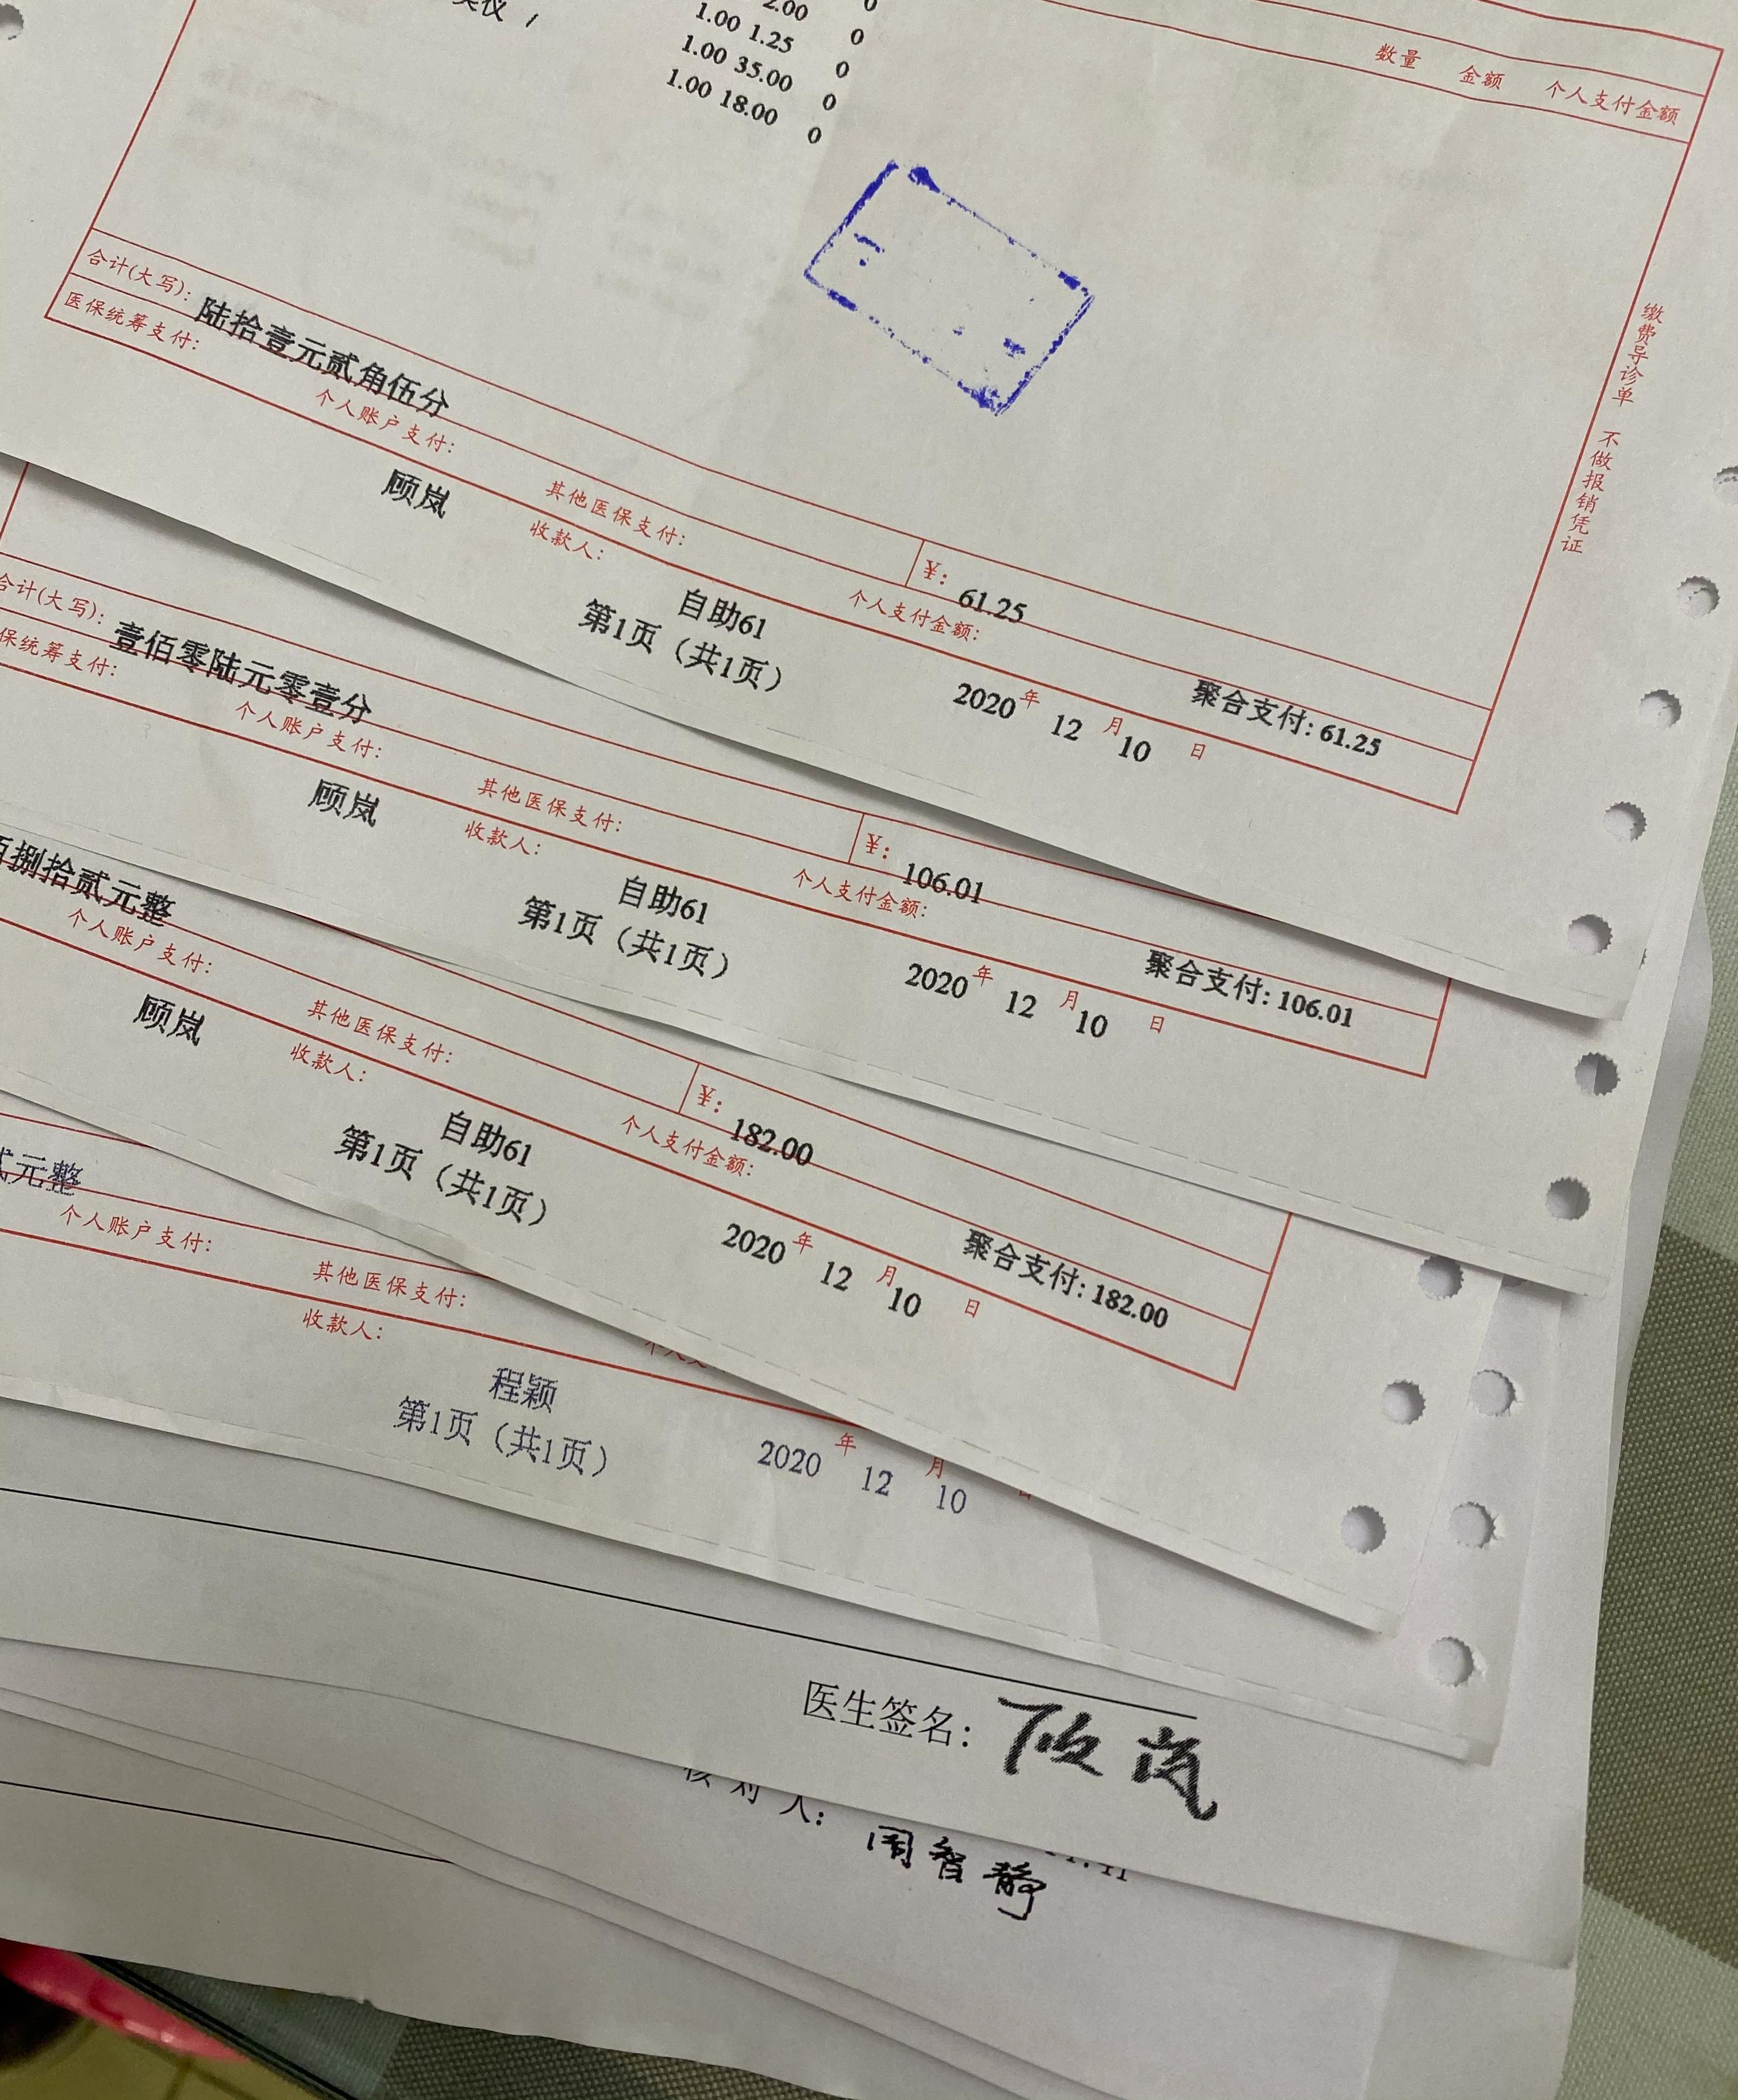 2.00 0
1.00 1.25 0
1.00 35.00 0
1.00 18.00 0
0
数量 金额 个人支付金额
缴费导诊单 不做报销凭证
合计(大写): 陆拾壹元贰角伍分
¥: 61.25
医保统筹支付: 个人账户支付: 其他医保支付: 个人支付金额: 聚合支付: 61.25
顾岚 收款人: 自助61 2020年 12月 10日
第1页（共1页）
合计(大写): 壹佰零陆元零壹分
¥: 106.01
保统筹支付: 个人账户支付: 其他医保支付: 个人支付金额: 聚合支付: 106.01
顾岚 收款人: 自助61 2020年 12月 10日
第1页（共1页）
捌拾贰元整
¥: 182.00
个人账户支付: 其他医保支付: 个人支付金额: 聚合支付: 182.00
顾岚 收款人: 自助61 2020年 12月 10日
第1页（共1页）
元整
个人账户支付: 其他医保支付:
收款人: 程颖 2020年 12月 10
第1页（共1页）
医生签名: 顾岚
核对人: 周智静